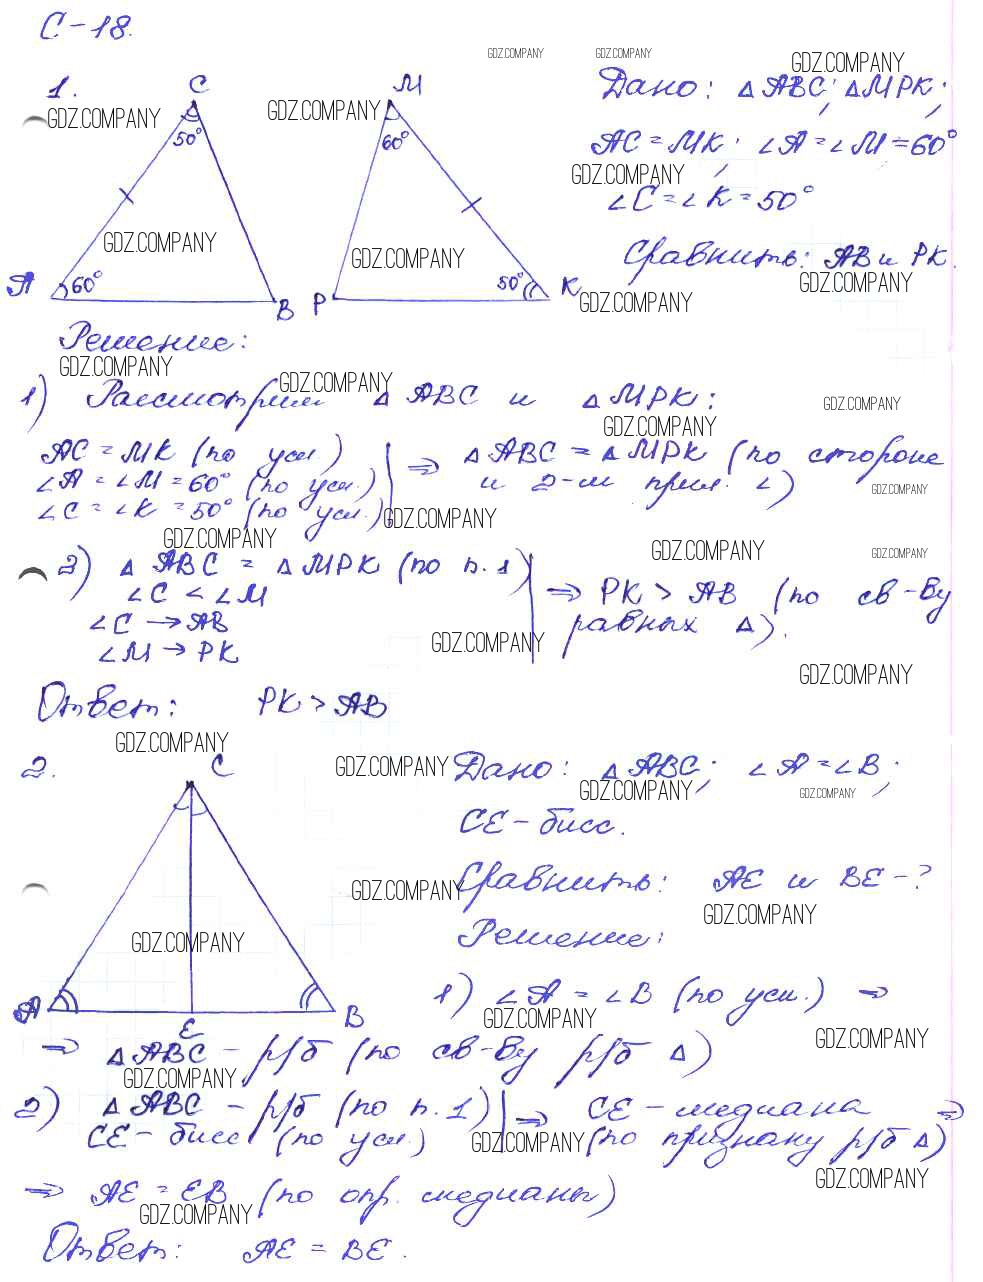 С-18.
GDZ.COMPANY GDZ.COMPANY GDZ.COMPANY
1. С М Дано: △ABC; △MPK;
GDZ.COMPANY GDZ.COMPANY
50° 60° AC = MK; ∠A = ∠M = 60°
GDZ.COMPANY
∠C = ∠K = 50°
GDZ.COMPANY GDZ.COMPANY
Сравнить: AB и PK.
A 60° B P 50° K
GDZ.COMPANY GDZ.COMPANY
Решение:
GDZ.COMPANY GDZ.COMPANY
1) Рассмотрим △ABC и △MPK:
GDZ.COMPANY GDZ.COMPANY
AC = MK (по усл) ⇒ △ABC = △MPK (по стороне
∠A = ∠M = 60° (по усл.) и 2-м прил. ∠)
GDZ.COMPANY
∠C = ∠K = 50° (по усл.)
GDZ.COMPANY
GDZ.COMPANY GDZ.COMPANY GDZ.COMPANY
2) △ABC = △MPK (по п.1)
∠C < ∠M ⇒ PK > AB (по св-ву
∠C → AB равных △).
∠M → PK
GDZ.COMPANY GDZ.COMPANY
Ответ: PK > AB
GDZ.COMPANY
2. C Дано: △ABC; ∠A = ∠B;
GDZ.COMPANY GDZ.COMPANY GDZ.COMPANY
CE - бисс.
Сравнить: AE и BE - ?
GDZ.COMPANY GDZ.COMPANY
GDZ.COMPANY
Решение:
1) ∠A = ∠B (по усл.) ⇒
A E B
GDZ.COMPANY GDZ.COMPANY
⇒ △ABC - р/б (по св-ву р/б △)
GDZ.COMPANY
2) △ABC - р/б (по п.1) ⇒ CE - медиана ⇒
CE - бисс (по усл.) (по признаку р/б △)
GDZ.COMPANY GDZ.COMPANY
⇒ AE = EB (по опр. медианы)
GDZ.COMPANY
Ответ: AE = BE.